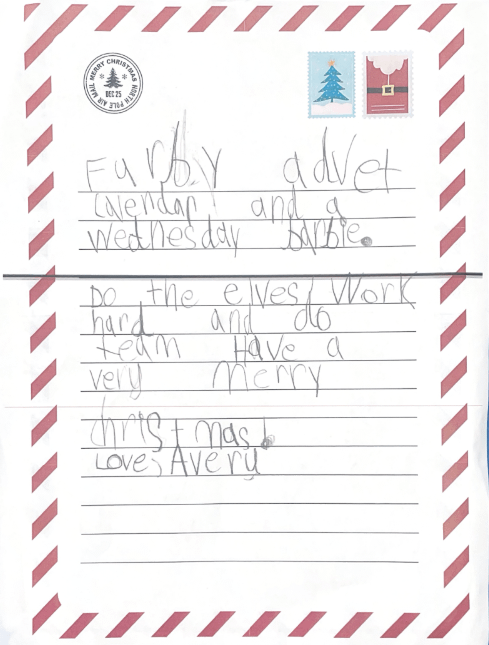 MERRY CHRISTMAS
NORTH POLE AIR MAIL
DEC 25
Furby advet
calendar and a
wednesday barbie.
Do the elves Work
hard and do
team Have a
very merry
christmas!
Loves Avery